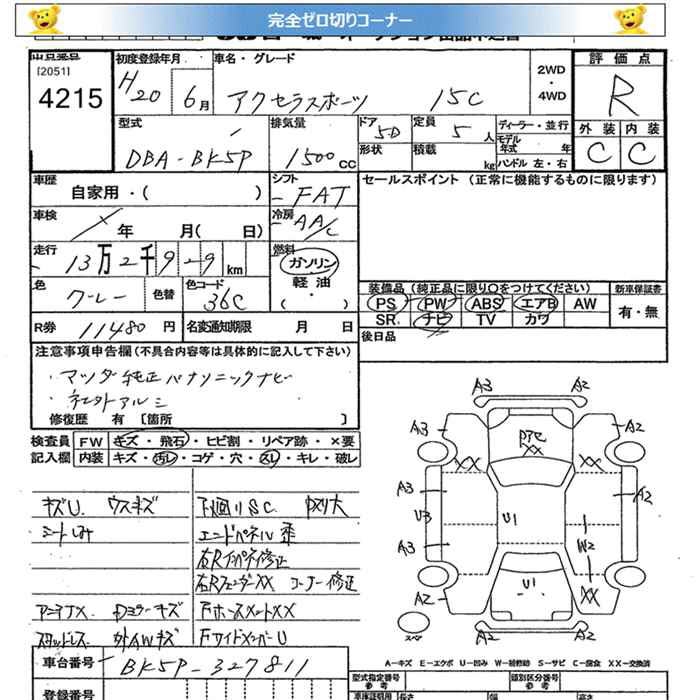 完全ゼロ切りコーナー
[2051]
4215
初度登録年月
H20 6月
車名・グレード
アクセラスポーツ 15C
2WD
・
4WD
評価点
R
外装 内装
C C
型式
DBA-BK5P
排気量
1500cc
ドア 5D
形状
定員 5人
積載 kg
ディーラー・並行
モデル年式 年
ハンドル 左・右
車歴
自家用・( )
シフト
FAT
車検
年 月( 日)
冷房
AA/C
走行
13万2千929km
燃料
ガソリン
・
軽油
( ・ )
色
グレー
色替
色コード
36C
R券 11480円
名変通知期限 月 日
セールスポイント (正常に機能するものに限ります)
装備品(純正品に限り○をつけてください)
PS PW ABS エアB AW
SR ナビ TV カワ
新車保証書
有・無
後日品
注意事項申告欄(不具合内容等は具体的に記入して下さい)
・マツダ純正パナソニックナビ
・社外アルミ
修復歴 有 [箇所 ]
検査員
記入欄
FW キズ・飛石・ヒビ割・リペア跡・×要
内装 キズ・汚レ・コゲ・穴・スレ・キレ・破レ
キズU ウスキズ
シートしみ
アンテナX Dミラーキズ
スタッドレス 外AWキズ
下廻りSC
エンドパネル歪
右Rインパネ修正
右RフェンダーXX コーナー修正
A3 A2
A3 A2
XX XX
A3 A2
U3 U1
A3 W2
U1 XX
A2
A2 A2
スペア
A-キズ E-エクボ U-凹み W-補修跡 S-サビ C-腐食 XX-交換済
車台番号 BK5P-327811
登録番号
型式指定番号
参考
類別区分番号
参考
長さ 幅 高さ